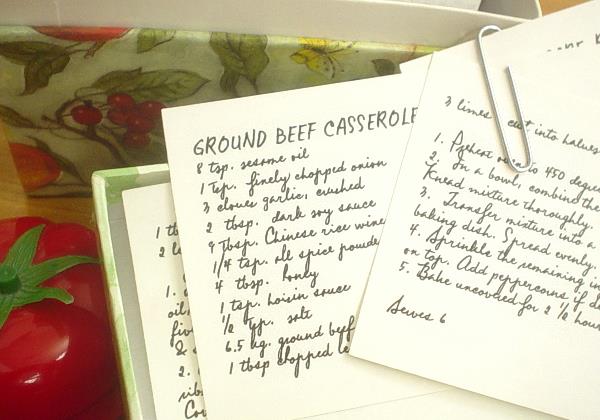 GROUND BEEF CASSEROLE
8 tsp. sesame oil
1 tsp. finely chopped onion
3 cloves garlic, crushed
2 tbsp. dark soy sauce
9 tbsp. Chinese rice wine
1/4 tsp. all spice powde
4 tbsp. honey
1 tsp. hoisin sauce
1/2 tsp. salt
6.5 kg. ground beef
1 tbsp chopped
3 limes cut into halves
1. Preheat oven to 450 degre
2. In a bowl, combine the
Knead mixture thoroughly.
3. Transfer mixture into a
baking dish. Spread evenly.
4. Sprinkle the remaining in
on top. Add peppercorns if
5. Bake uncovered for 2 1/2 hour
Serves 6
1
2
1.
oil
five
&
2.
rib